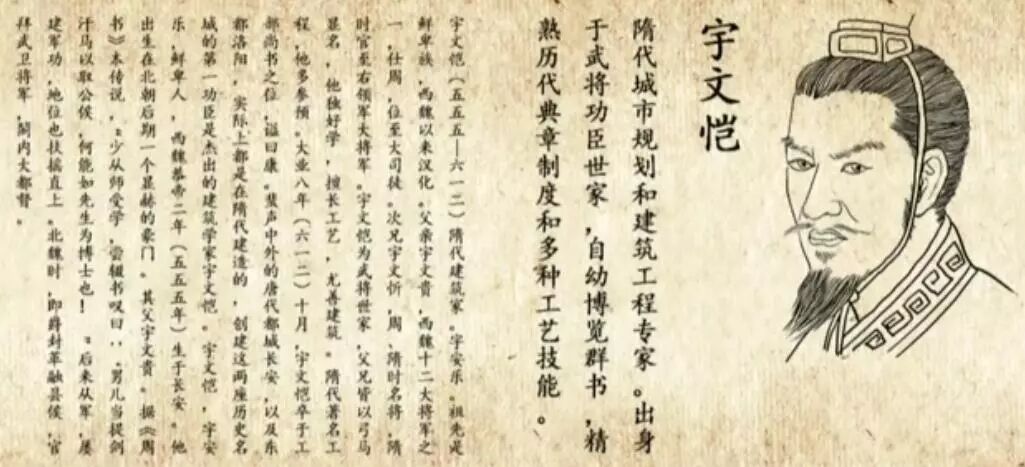 宇文恺
隋代城市规划和建筑工程专家。出身
于武将功臣世家,自幼博览群书,精
熟历代典章制度和多种工艺技能。
宇文恺(五五五—六一二)隋代建筑家。字安乐。祖先是
鲜卑族,西魏以来汉化。父亲宇文贵,西魏十二大将军之
一,仕周,位至大司徒。次兄宇文忻,周、隋时名将,隋
时官至右领军大将军。宇文恺为武将世家,父兄皆以弓马
显名,他独好学,擅长工艺,尤善建筑。隋代著名工
程,他多参预。大业八年(六一二)十月,宇文恺卒于工
部尚书之位,谥曰康。蜚声中外的唐代都城长安,以及东
都洛阳,实际上都是在隋代建造的,创建这两座历史名
城的第一功臣是杰出的建筑学家宇文恺。宇文恺,字安
乐,鲜卑人,西魏恭帝二年(五五五年)生于长安。他
出生在北朝后期一个显赫的豪门。其父宇文贵。据《周
书》本传说,“少从师受学,尝辍书叹曰:‘男儿当提剑
汗马以取公侯,何能如先生为博士也!’”后来从军,屡
建军功,地位也扶摇直上。北魏时,即爵封革融县侯,官
拜武卫将军,閤内大都督。